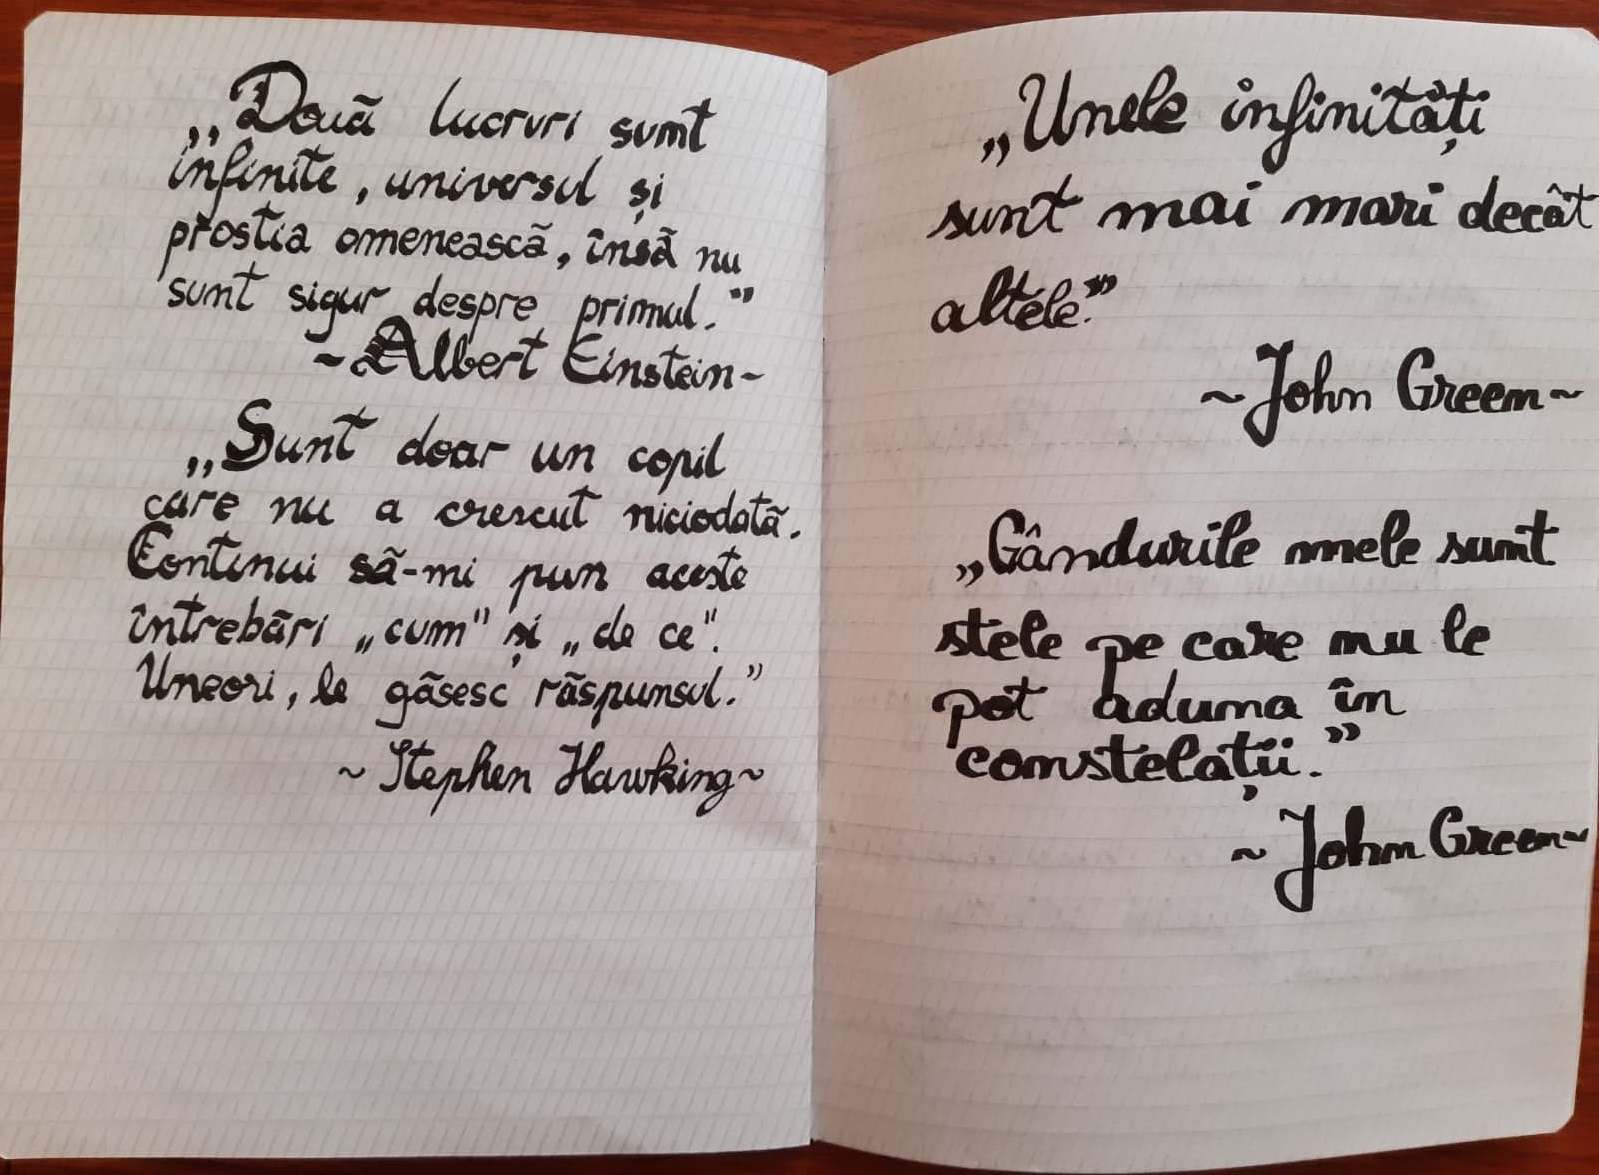 „Două lucruri sunt
infinite, universul și
prostia omenească, însă nu
sunt sigur despre primul.”
~Albert Einstein~
„Sunt doar un copil
care nu a crescut niciodată.
Continui să-mi pun aceste
întrebări „cum" și „de ce".
Uneori, le găsesc răspunsul.”
~Stephen Hawking~
„Unele infinități
sunt mai mari decât
altele.”
~John Green~
„Gândurile mele sunt
stele pe care nu le
pot aduna în
constelații.”
~John Green~